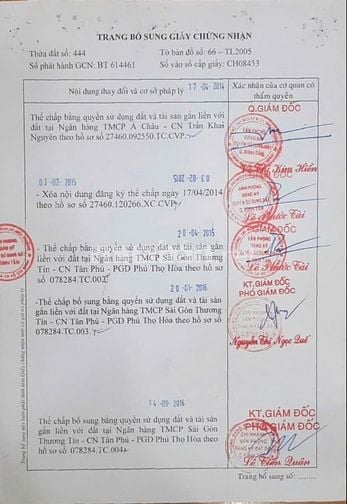 TRANG BỔ SUNG GIẤY CHỨNG NHẬN
Thửa đất số: 444 Tờ bản đồ số: 66 – TL2005
Số phát hành GCN: BT 614461 Số vào sổ cấp giấy: CH08453
Nội dung thay đổi và cơ sở pháp lý
Xác nhận của cơ quan có
thẩm quyền
17-04-2014
Thế chấp bằng quyền sử dụng đất và tài sản gắn liền với
đất tại Ngân hàng TMCP Á Châu - CN Trần Khai
Nguyên theo hồ sơ số 27460.092550.TC.CVP
Q.GIÁM ĐỐC
Võ Thị Kim Hiền
03-02-2015
- Xóa nội dung đăng ký thế chấp ngày 17/04/2014
theo hồ sơ số 27460.120266.XC.CVP
Lê Phước Tài
20-04-2015
Thế chấp bằng quyền sử dụng đất và tài sản gắn
liền với đất tại Ngân hàng TMCP Sài Gòn Thương
Tín - CN Tân Phú - PGD Phú Thọ Hòa theo hồ sơ số
078284.TC.002
Lê Phước Tài
20-01-2016
-Thế chấp bổ sung bằng quyền sử dụng đất và tài sản
gắn liền với đất tại Ngân hàng TMCP Sài Gòn Thương
Tín - CN Tân Phú - PGD Phú Thọ Hòa theo hồ sơ số
078284.TC.003
KT.GIÁM ĐỐC
PHÓ GIÁM ĐỐC
Nguyễn Thị Ngọc Quế
14-09-2016
Thế chấp bổ sung bằng quyền sử dụng đất và tài sản
gắn liền với đất tại Ngân hàng TMCP Sài Gòn
Thương Tín - CN Tân Phú - PGD Phú Thọ Hòa theo
hồ sơ số 078284.TC.004
KT.GIÁM ĐỐC
PHÓ GIÁM ĐỐC
Lê Tiến Quân
Trang bổ sung số: